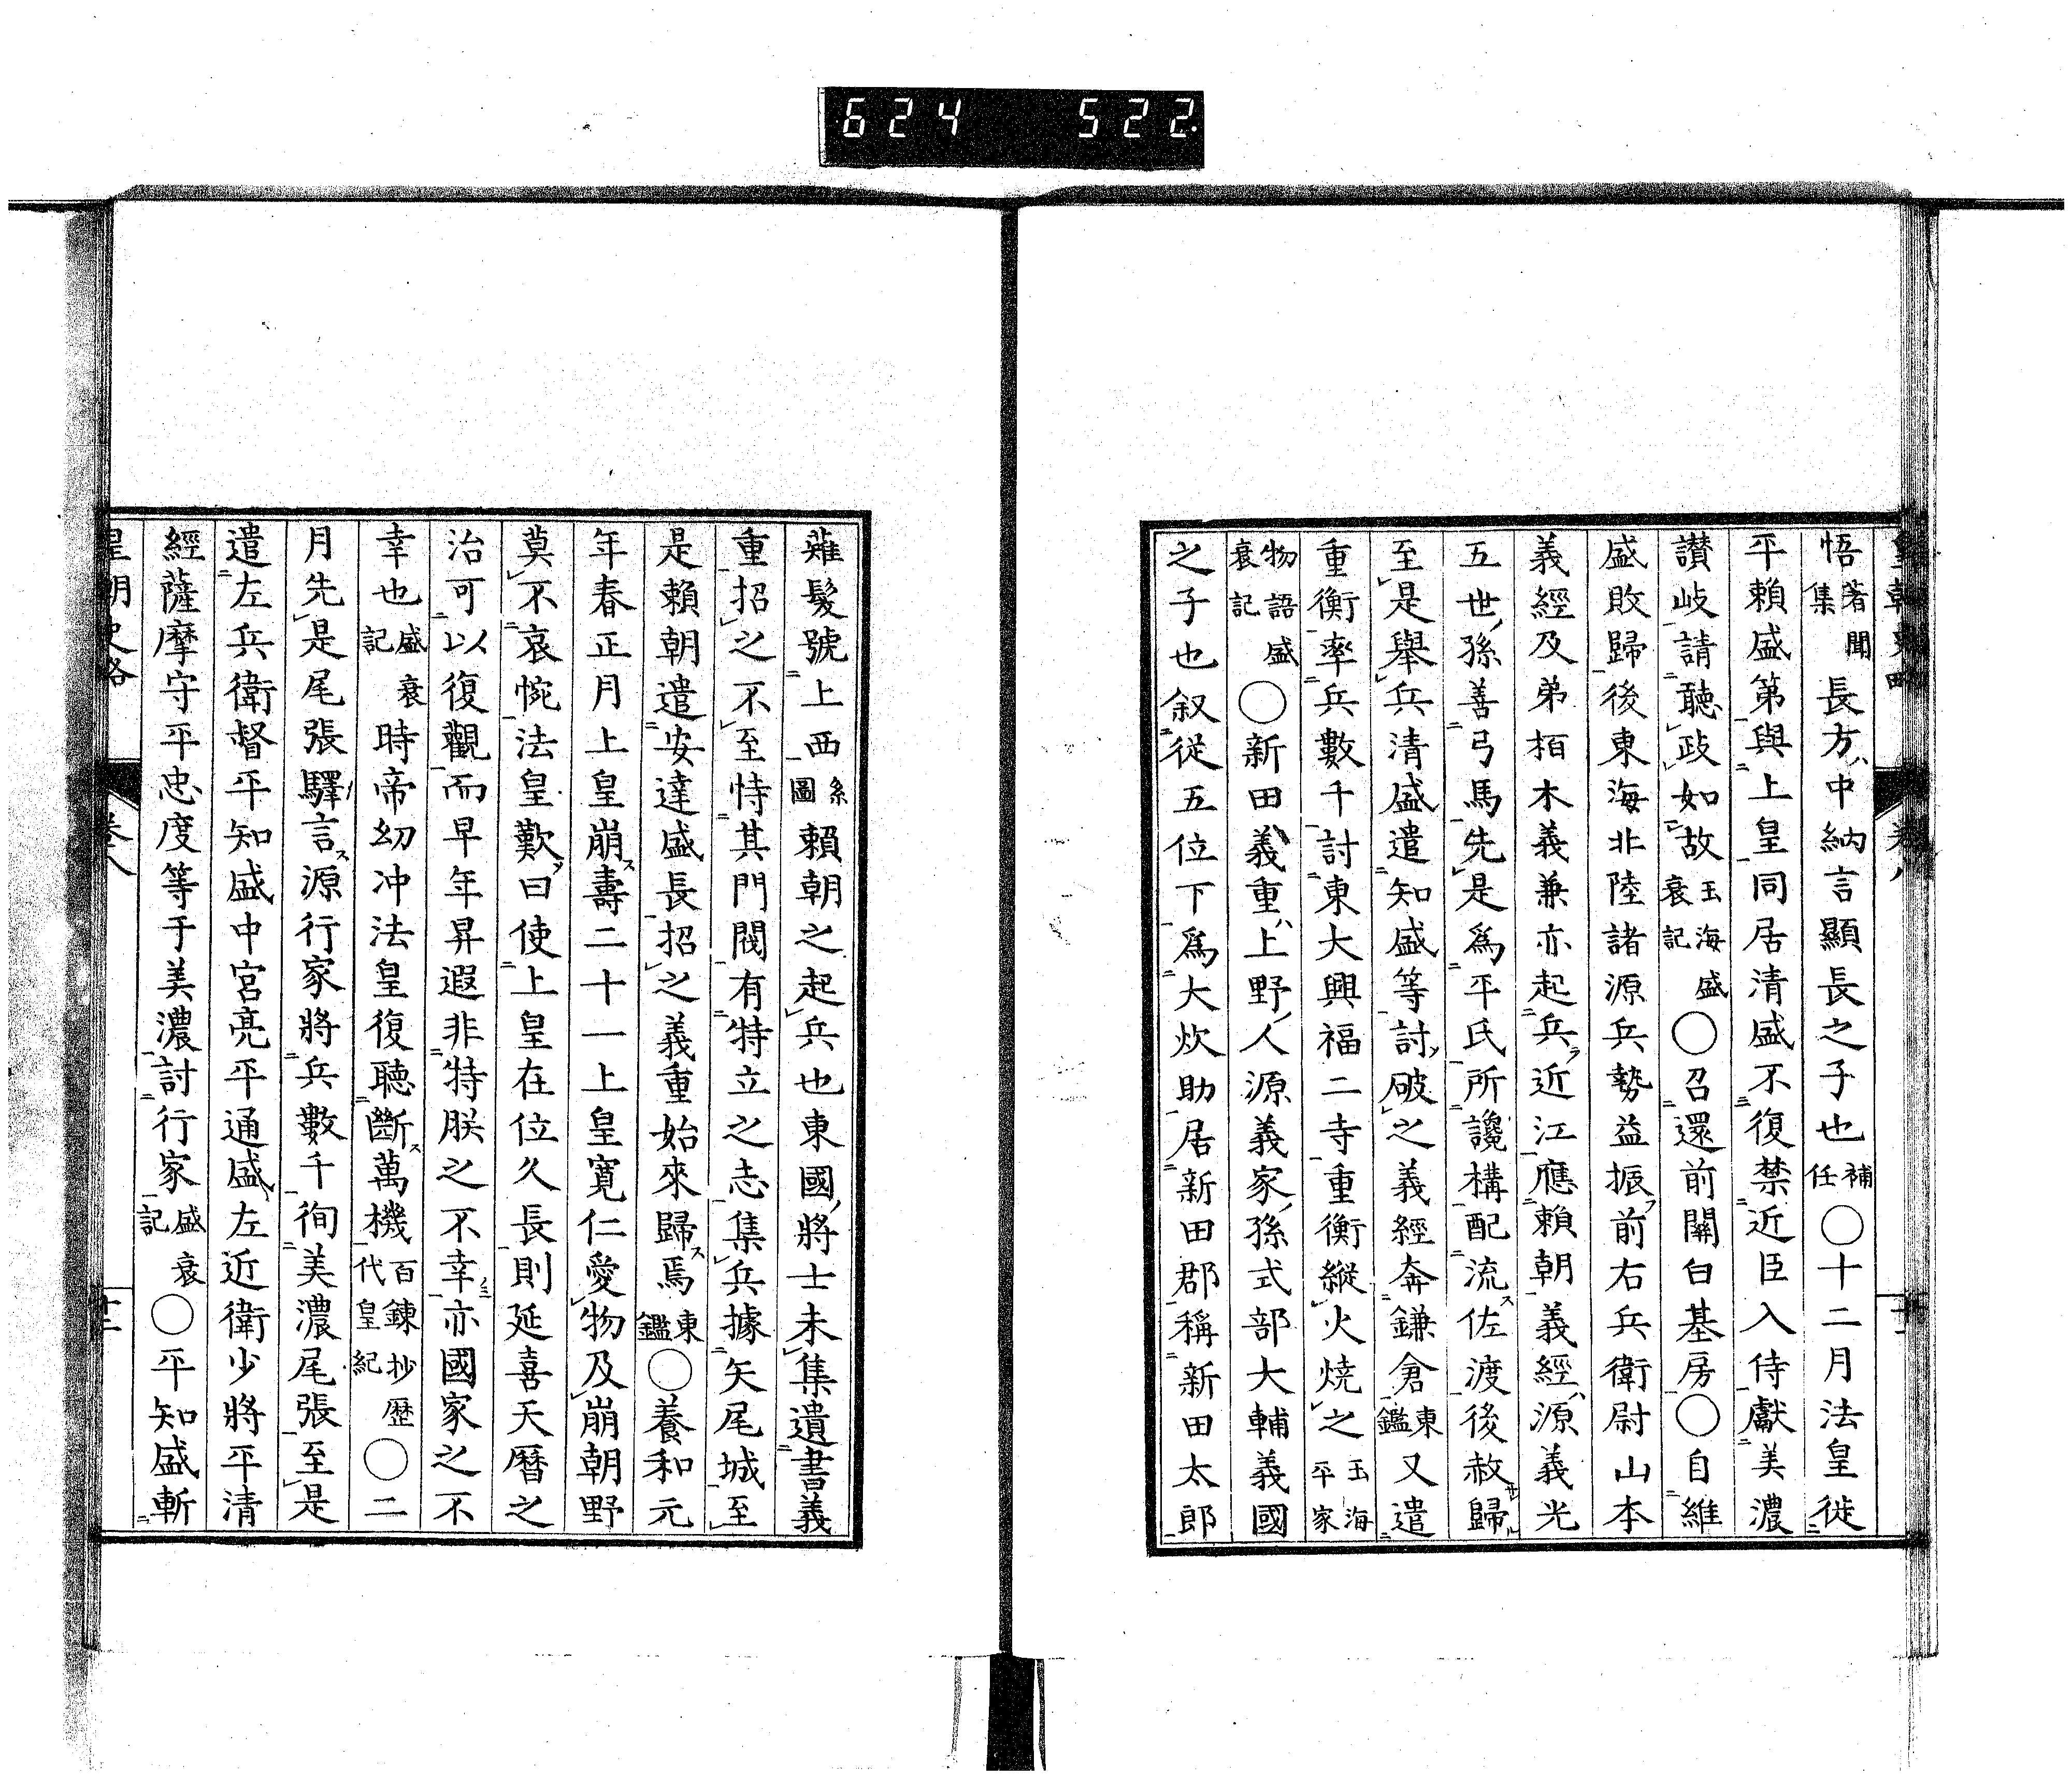 624 522
皇朝史略 卷八 十一
悟著聞集長方中納言顯長之子也補任○十二月法皇徙
平賴盛第與上皇同居清盛不復禁近臣入侍獻美濃
讃岐請聽政如故玉海盛衰記○召還前關白基房○自維
盛敗歸後東海北陸諸源兵勢益振前右兵衛尉山本
義經及弟栢木義兼亦起兵近江應賴朝義經源義光
五世孫善弓馬先是爲平氏所讒構配流佐渡後赦歸
至是舉兵清盛遣知盛等討破之義經奔鎌倉東鑑又遣
重衡率兵數千討東大興福二寺重衡縱火燒之玉海平家
物語盛衰記○新田義重上野人源義家孫式部大輔義國
之子也叙從五位下爲大炊助居新田郡稱新田太郎
薙髮號上西系圖賴朝之起兵也東國將士未集遺書義
重招之不至恃其門閥有特立之志集兵據矢尾城至
是賴朝遣安達盛長招之義重始來歸焉東鑑○養和元
年春正月上皇崩壽二十一上皇寬仁愛物及崩朝野
莫不哀惋法皇歎曰使上皇在位久長則延喜天曆之
治可以復觀而早年昇遐非特朕之不幸亦國家之不
幸也盛衰記時帝幼冲法皇復聽斷萬機百鍊抄歷代皇紀○二
月先是尾張驛言源行家將兵數千徇美濃尾張至是
遣左兵衛督平知盛中宮亮平通盛左近衛少將平清
經薩摩守平忠度等于美濃討行家盛衰記○平知盛斬
皇朝史略 卷八 十二